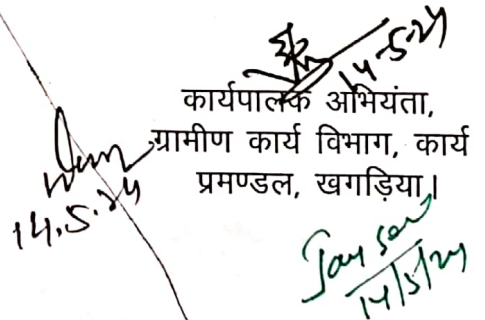 14-5-24
कार्यपालक अभियंता,
ग्रामीण कार्य विभाग, कार्य
प्रमण्डल, खगड़िया।
14.5.24
14/5/24